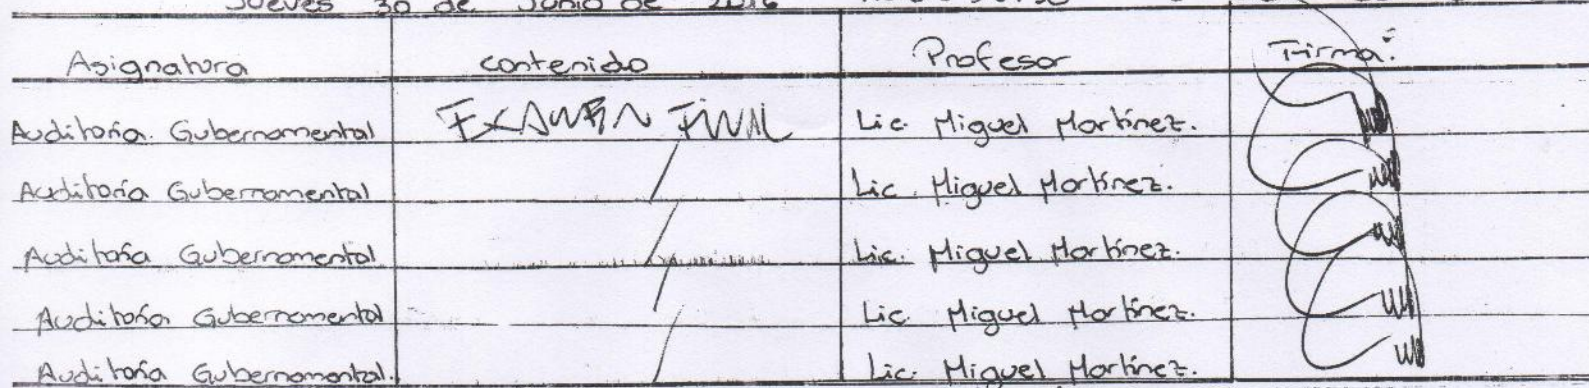 Jueves 30 de Junio de 2016
Asignatura contenido Profesor Firma:
Auditoría Gubernamental EXAMEN FINAL Lic. Miguel Martínez.
Auditoría Gubernamental / Lic. Miguel Martínez.
Auditoría Gubernamental / Lic. Miguel Martínez.
Auditoría Gubernamental / Lic. Miguel Martínez.
Auditoría Gubernamental. / Lic. Miguel Martínez.